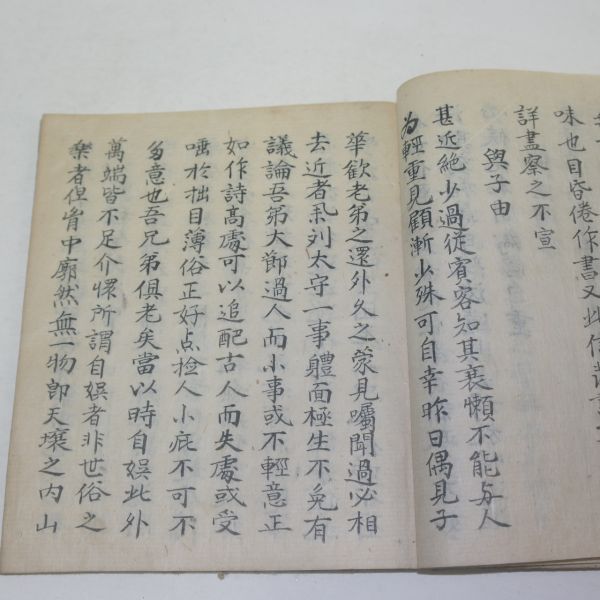 味也目昏倦作書又此作
詳盡察之不宣
與子由
甚近絶少過從賓客知其衰懶不能与人
為輕重見顧漸少殊可自幸昨日偶見子
華歎老弟之遠外久之蒙見囑聞過必相
去近者累列太守一事軆面極生不免有
議論吾弟大節過人而小事或不輕意正
如作詩高處可以追配古人而失處或受
嗤於拙目薄俗正好点撿人小疵不可不
留意也吾兄弟俱老矣當以時自娱此外
萬端皆不足介懷所謂自娱者非世俗之
樂者但胷中廓然無一物即天壤之内山